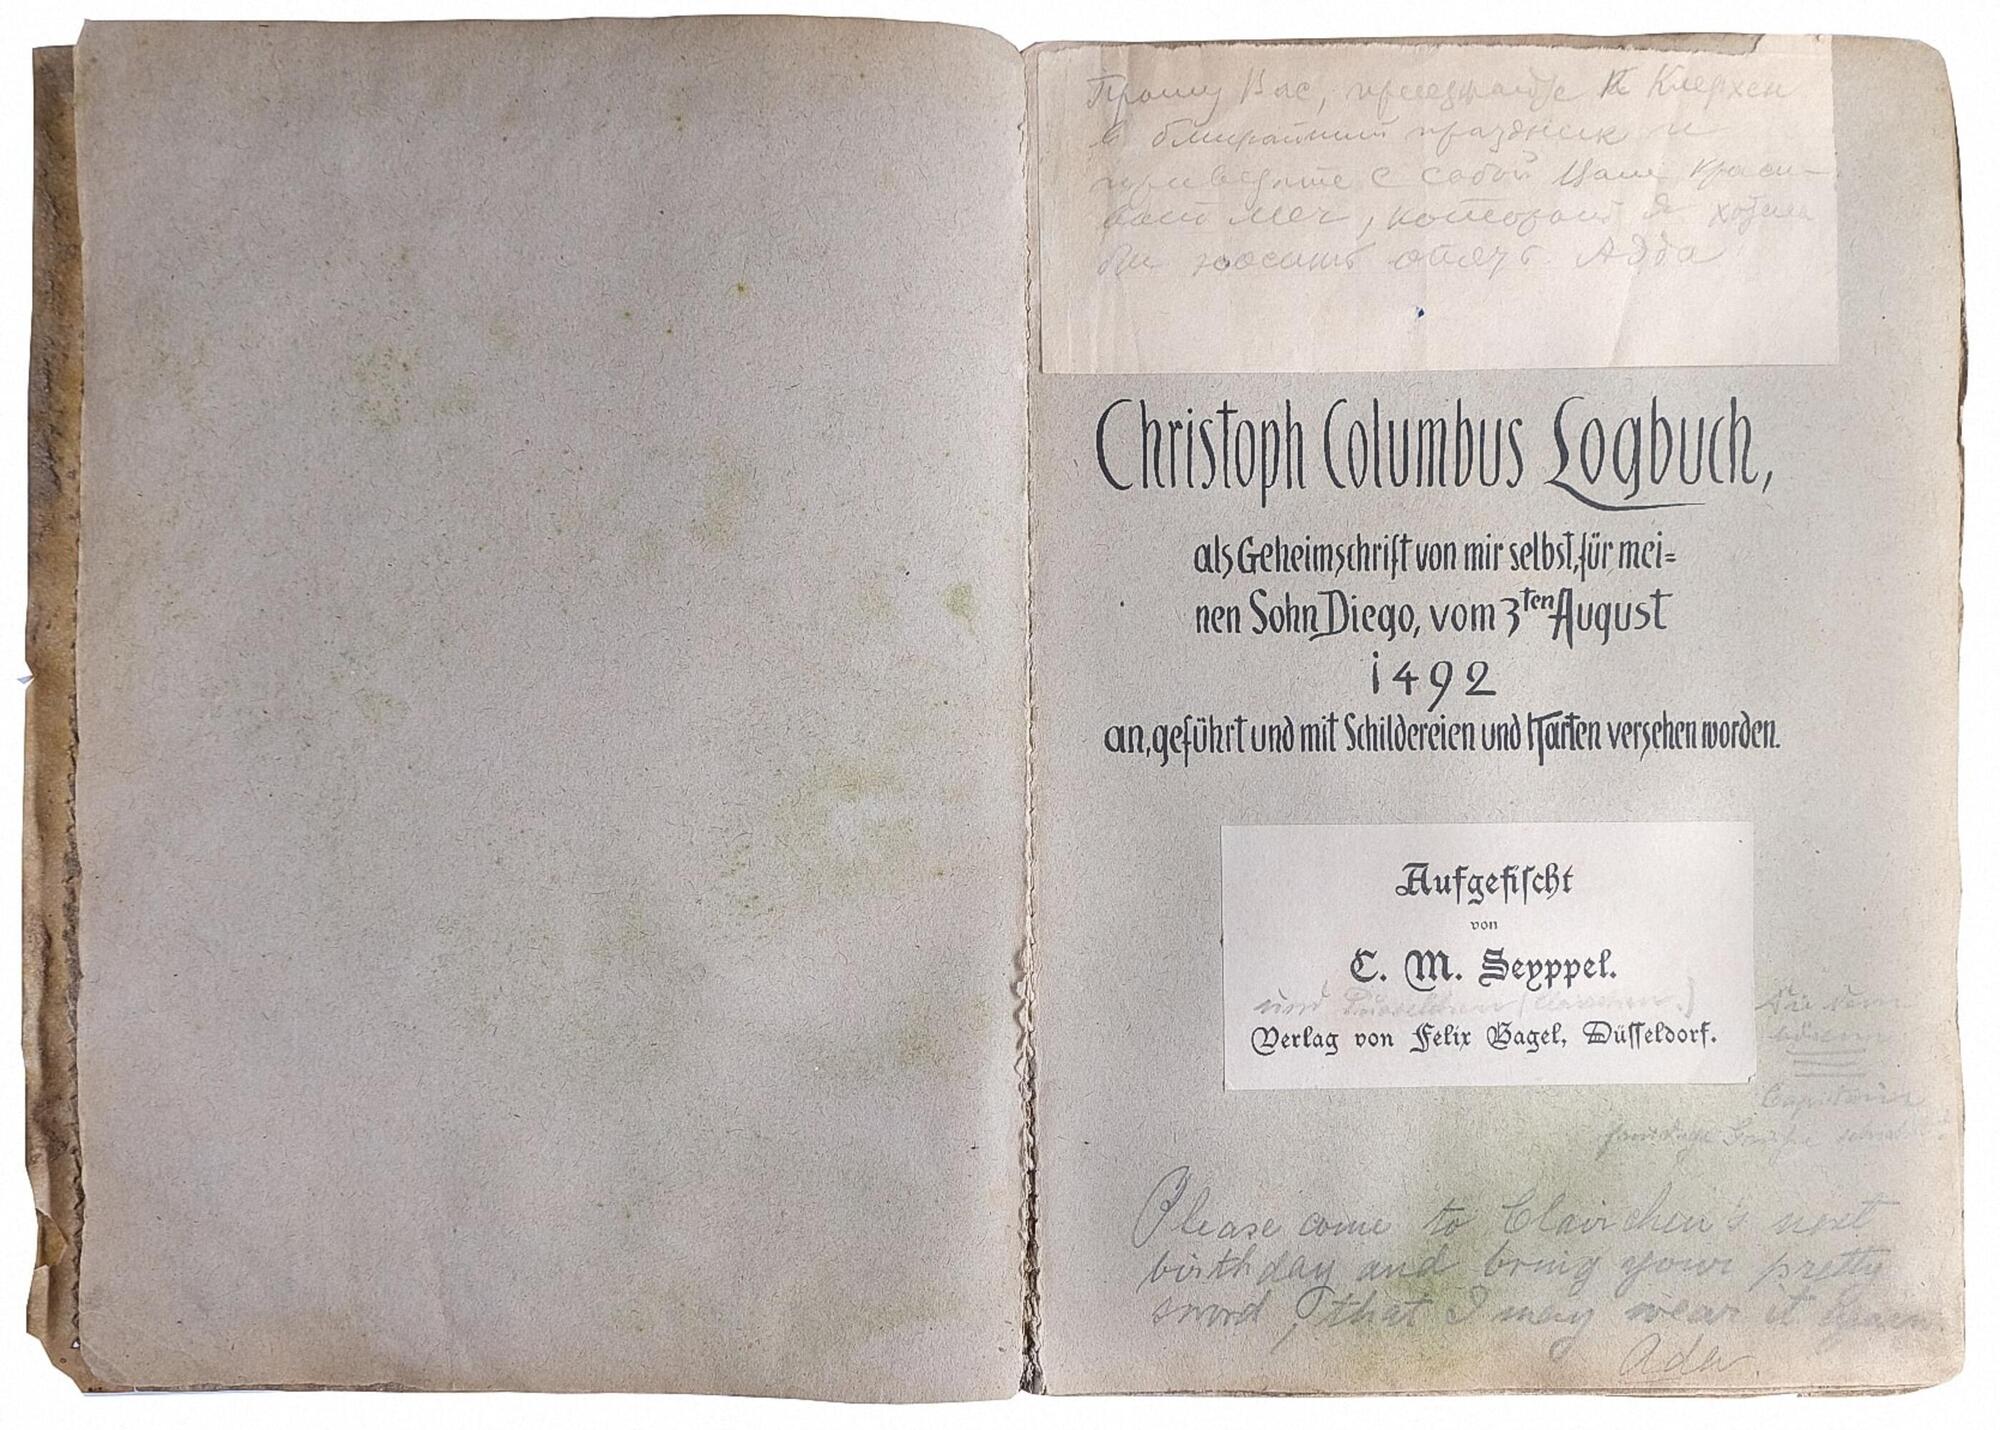 Прошу Вас, приезжайте к Клерхен
в ближайший праздник и
привезите с собой Ваш краси-
вый меч, который я хотела
бы носить опять. Адда
Christoph Columbus Logbuch,
als Geheimschrift von mir selbst, für mei=
nen Sohn Diego, vom 3ten August
1492
an, geführt und mit Schildereien und Karten versehen worden.
Aufgefischt
von
C. M. Seyppel.
und
Verlag von Felix Bagel, Düsseldorf.
Please come to Clairchen's next
birthday and bring your pretty
sword, that I may wear it again.
Ada.